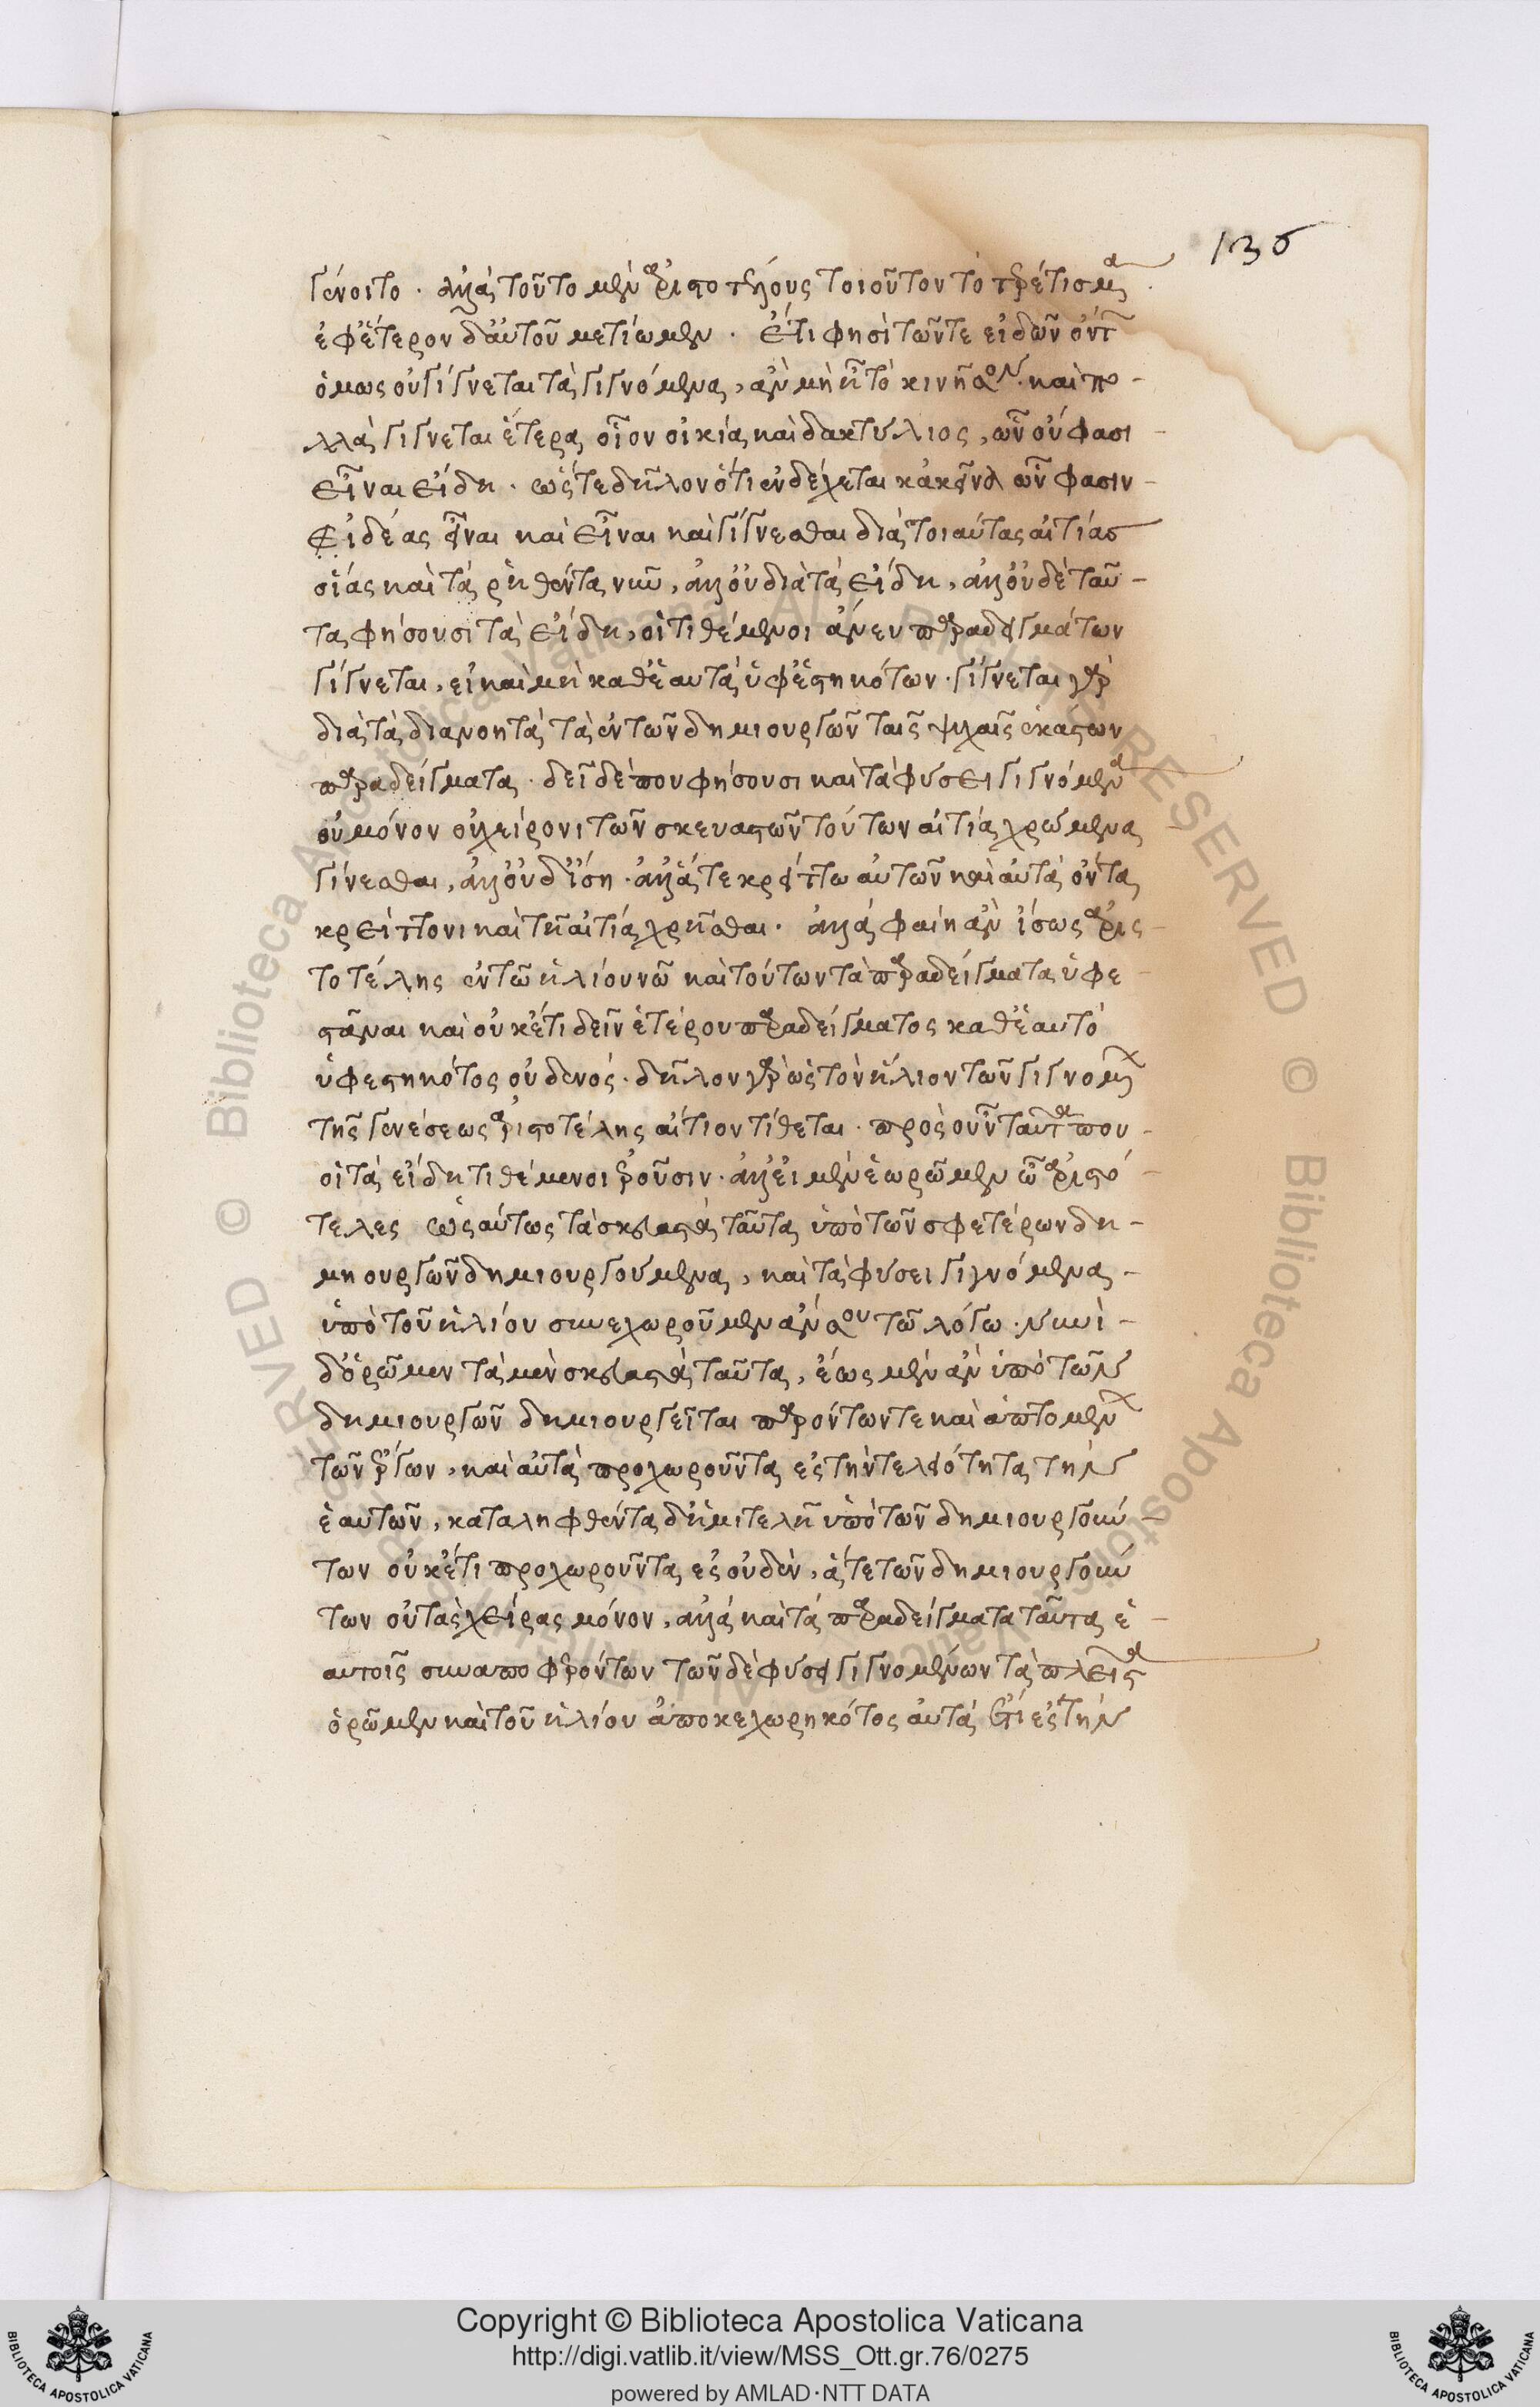 135
γένοιτο · ἀλλὰ τοῦτο μὲν ἀριστοτέλους τοιοῦτον τὸ τερέτισμα ·
ἐφ' ἕτερον δ' αὐτοῦ μετίωμεν · ἔτι φησὶ τῶν τε εἰδῶν ὄντ
ὅμως οὐ γίγνεται τὰ γιγνόμενα, ἂν μὴ ᾖ τὸ κινῆσον · καὶ πο-
λλὰ γίγνεται ἕτερα οἷον οἰκία καὶ δακτύλιος, ὧν οὔ φασι
εἶναι εἴδη · ὥστε δῆλον ὅτι ἐνδέχεται κἀκεῖνα ὧν φασιν
εἰδέας εἶναι καὶ εἶναι καὶ γίγνεσθαι διὰ τοιαύτας αἰτίας
οἵας καὶ τὰ ῥηθέντα νῦν, ἀλλ' οὐ διὰ τὰ εἴδη, ἀλλ' οὐδὲ ταῦ-
τα φήσουσι τὰ εἴδη, οἱ τιθέμενοι ἄνευ παραδειγμάτων
γίγνεται, εἰ καὶ μὴ καθ' ἑαυτὰ ὑφεστηκότων · γίγνεται γὰρ
διὰ τὰ διανοητὰ τὰ ἐν τῶν δημιουργῶν ταῖς ψυχαῖς ἑκάστων
παραδείγματα · δεῖ δέ που φήσουσι καὶ τὰ φύσει γιγνόμενα
οὐ μόνον οὐ χείρονι τῶν σκευαστῶν τούτων αἰτία χρώμενα
γίνεσθαι, ἀλλ' οὐδ' ἴση · ἀλλ' ἅτε κρείττω αὐτῶν καὶ αὐτὰ ὄντα
κρείττονι καὶ τῆ αἰτία χρῆσθαι · ἀλλὰ φαίη ἂν ἴσως ἀρις-
τοτέλης ἐν τῶ ἡλίου νῶ καὶ τούτων τὰ παραδείγματα ὑφε-
στάναι καὶ οὐκέτι δεῖν ἑτέρου παραδείγματος καθ' ἑαυτὸ
ὑφεστηκότος οὐδενός · δῆλον γὰρ ὡς τὸν ἥλιον τῶν γιγνομένων
τῆς γενέσεως ἀριστοτέλης αἴτιον τίθεται · πρὸς οὖν ταῦτά που
οἱ τὰ εἴδη τιθέμενοι ἐροῦσιν · ἀλλ' εἰ μὲν ἑωρῶμεν ὦ ἀριστό-
τελες ὡσαύτως τὰ σκευαστὰ ταῦτα ὑπὸ τῶν σφετέρων δη-
μηουργῶν δημιουργούμενα, καὶ τὰ φύσει γιγνόμενα-
ὑπὸ τοῦ ἡλίου συνεχωροῦμεν ἄν σου τῶ λόγω · νυνὶ-
δ' ὁρῶμεν τὰ μὲν σκευαστὰ ταῦτα, ἕως μὲν ἂν ὑπὸ τῶν
δημιουργῶν δημιουργεῖται παρόντων τε καὶ ἁπτομένων
τῶν ἔργων, καὶ αὐτὰ προχωροῦντα ἐς τὴν τελειότητα τὴν
ἑαυτῶν, καταληφθέντα δ' ἡμιτελῆ ὑπὸ τῶν δημιουργούν-
των οὐκέτι προχωροῦντα ἐς οὐδὲν, ἅτε τῶν δημιουργούν
των οὐ τὰς χεῖρας μόνον, ἀλλὰ καὶ τὰ παραδείγματα ταῦτα ἑ-
αυτοῖς συναποφερόντων τῶν δὲ φύσει γιγνομένων τὰ πλεῖστα
ὁρῶμεν καὶ τοῦ ἡλίου ἀποκεχωρηκότος αὐτὰ ἔτι ἐς τὴν
Copyright © Biblioteca Apostolica Vaticana
http://digi.vatlib.it/view/MSS_Ott.gr.76/0275
powered by AMLAD·NTT DATA
BIBLIOTECA APOSTOLICA VATICANA
BIBLIOTECA APOSTOLICA VATICANA